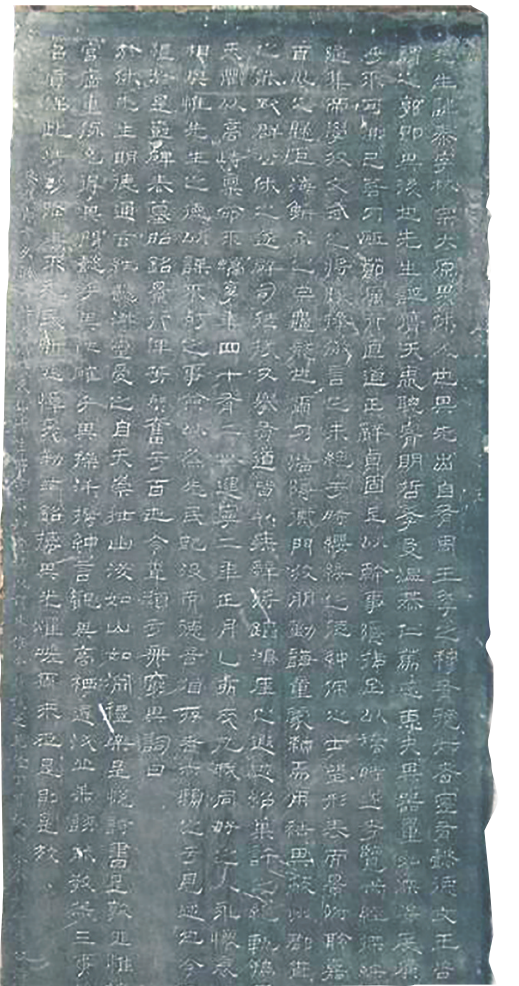 先生諱泰字林宗太原界休人也其先出自有周王季之穆有虢叔者寔有懿德文王咨
謂之郭即其後也先生誕應天衷聰睿明哲孝友溫恭仁篤慈惠夫其器量弘深姿度廣
乎不可測已若乃砥節厲行直道正辭貞固足以幹事隱括足以矯時遂考覽六經探綜
隨集帝學收文武之將墜拯微言之未絕于時纓緌之徒紳佩之士望形表而景附聆嘉
百川之歸巨海鱗介之宗龜龍也爾乃潛隱衡門收朋勤誨童蒙賴焉用祛其蔽州郡聞
之能致群公休之遂辟司徒掾又舉有道皆以疾辭將蹈鴻厓之遐迹紹巢許之絕軌翔區
天衢以高峙稟命不融享年四十有二以建寧二年正月乙亥卒凡我同好之人永懷哀
相與惟先生之德以謀不朽之事僉以為先民既沒而德音猶存者亦賴之于見述也今
於是建碑表墓昭銘景行俾芳烈奮于百世令聞顯于無窮其詞曰
於休先生明德通玄純懿淑靈受之自天崇壯幽浚如山如淵禮樂是悅詩書是敦匪惟
宮牆重仞允得其門懿乎其純確乎其操洋洋搢紳言觀其高棲遲泌丘善誘能教赫赫三事
召貢保此清妙降年不永民斯悲悼爰勒茲銘摛其光耀嗟爾來世是則是效